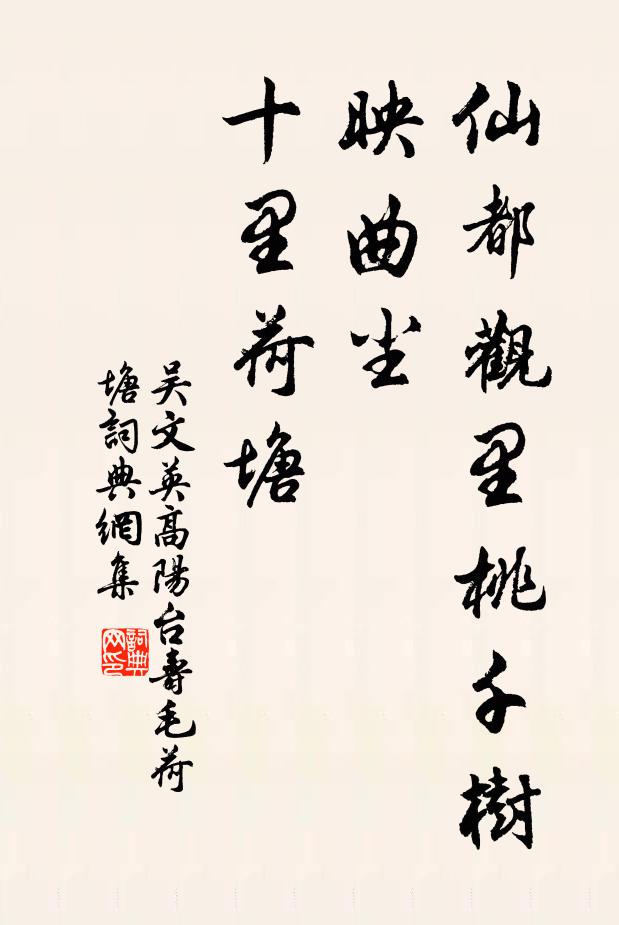 仙都觀里桃千樹
映曲尘
十里荷塘
吴文英高陽台壽毛荷
塘詞典網集
詞典网印